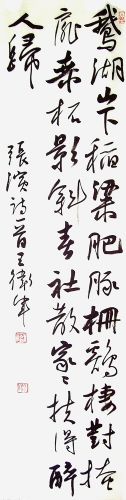 鵝湖山下稻梁肥豚柵鷄棲對掩
扉桑柘影斜春社散家々扶得醉
人歸
張演詩一首王